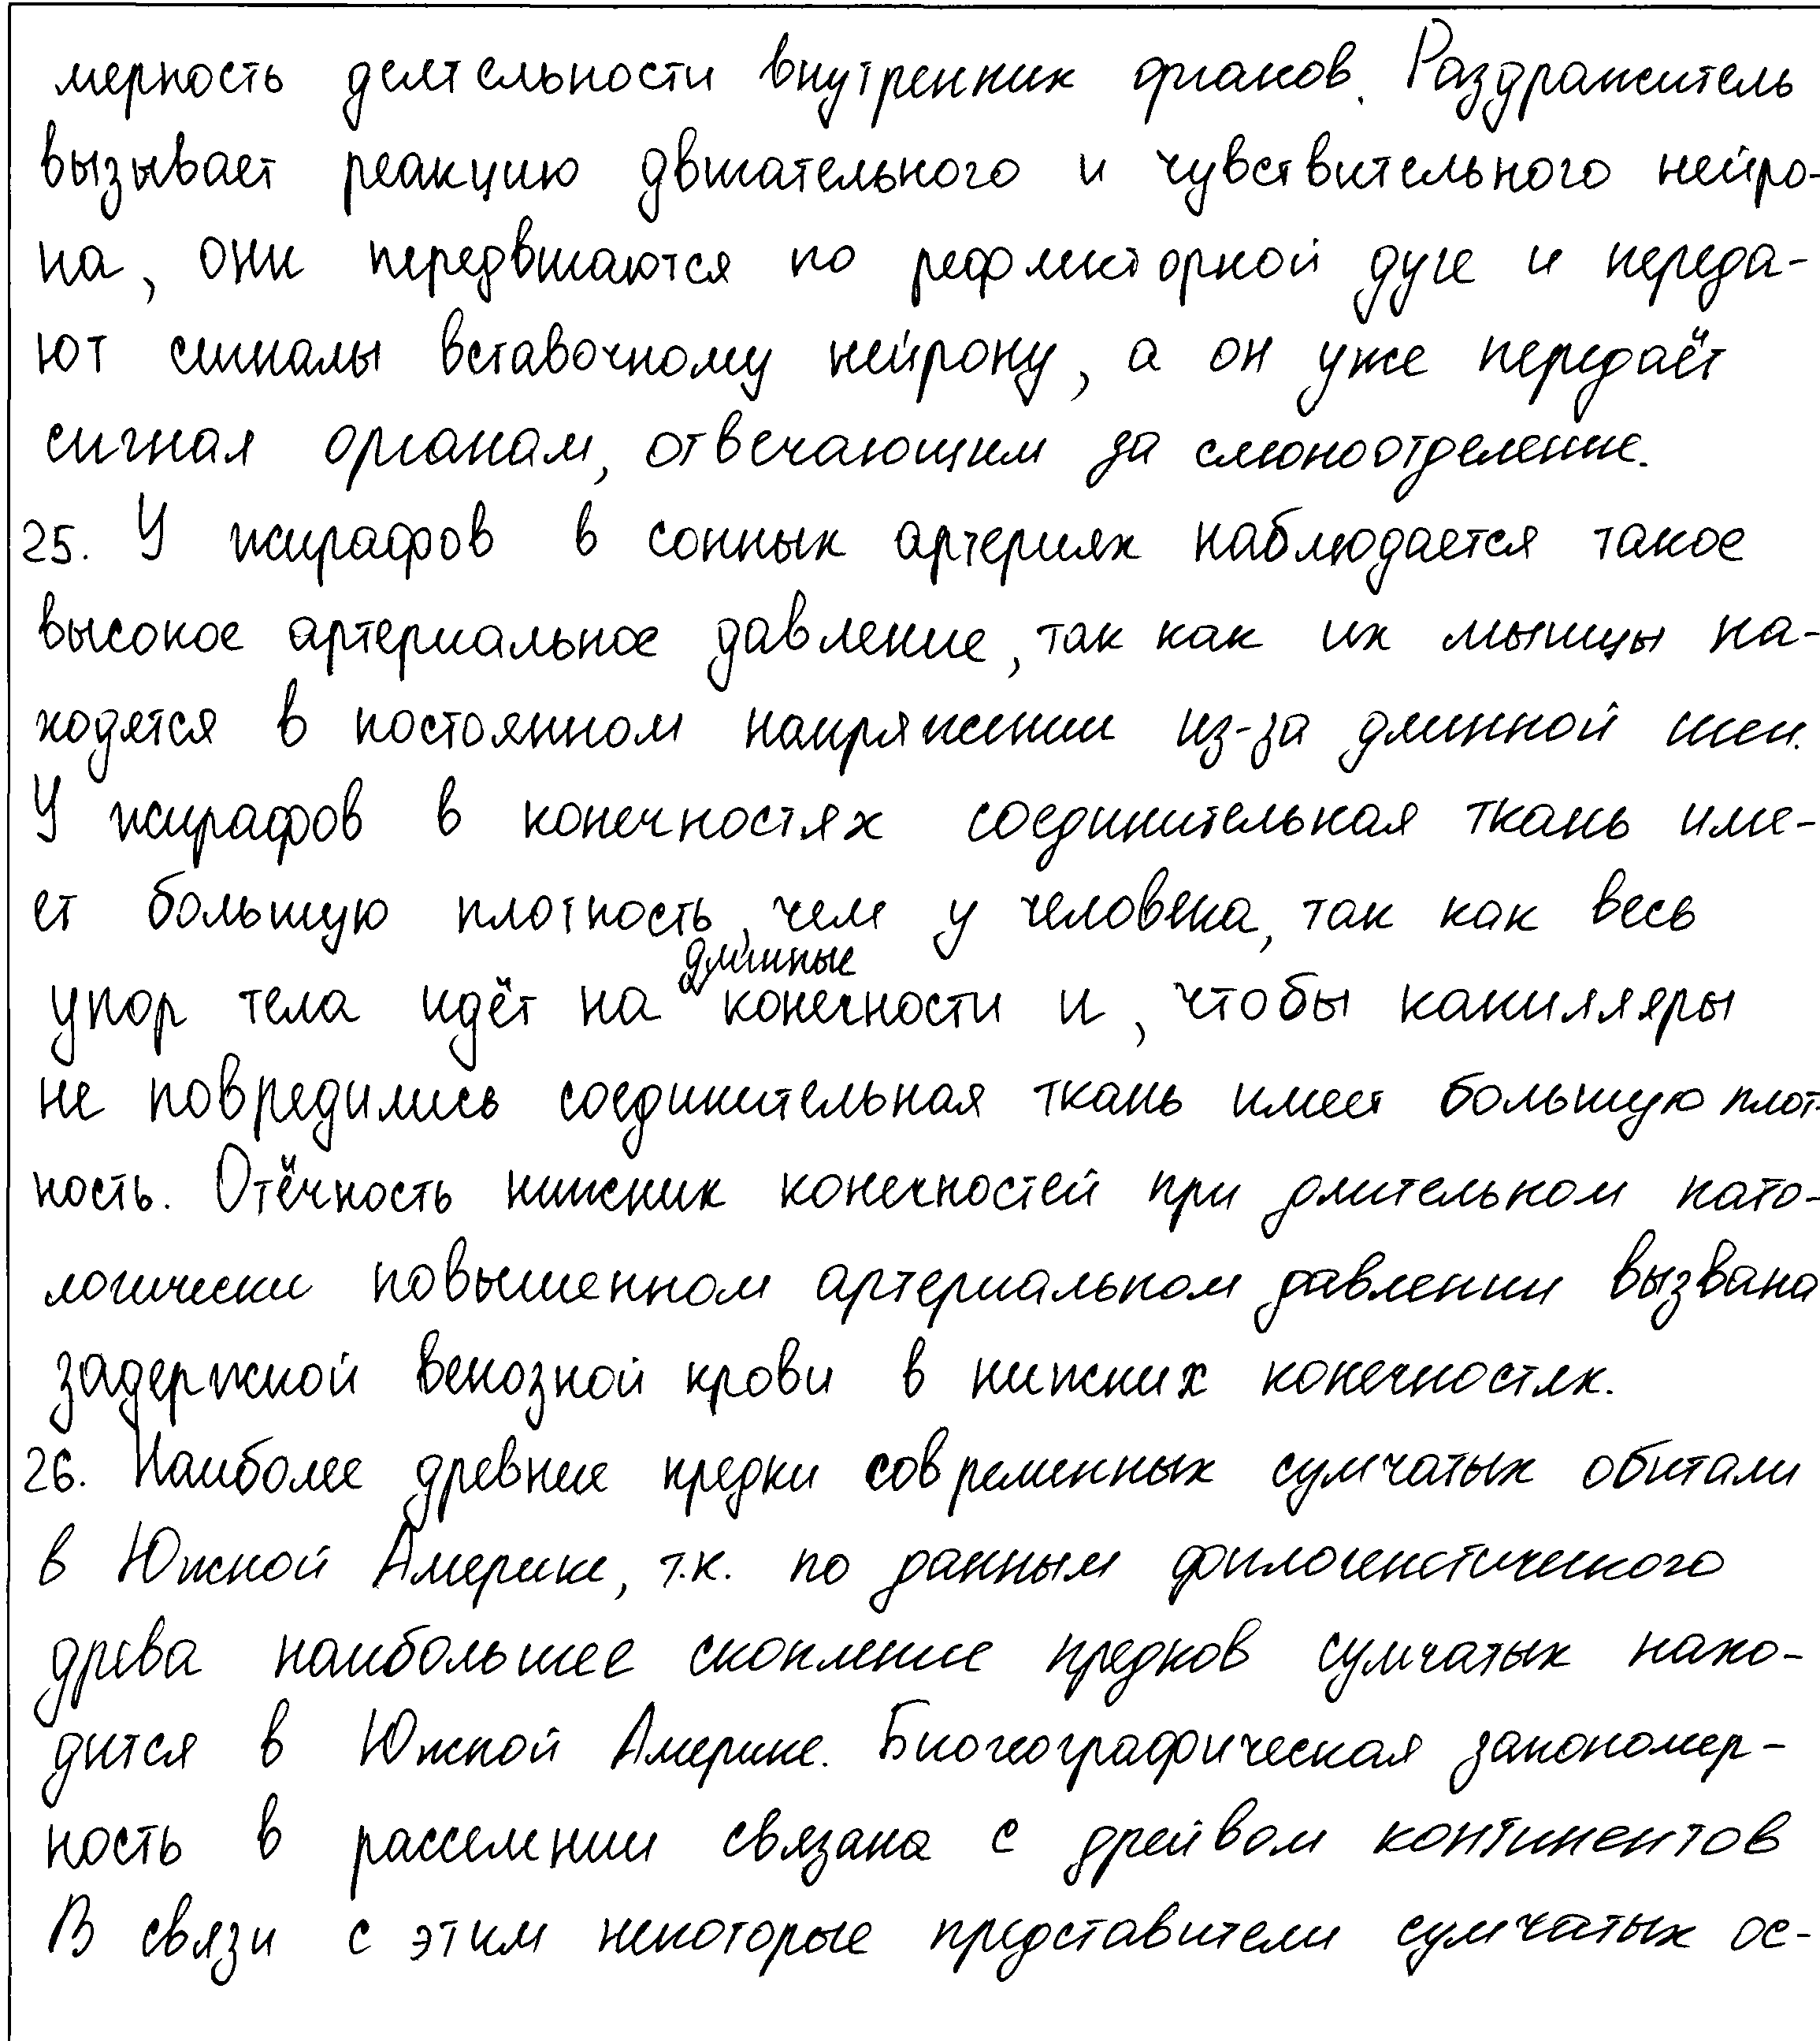 мерность деятельности внутренних органов. Раздражитель
вызывает реакцию двигательного и чувствительного нейро-
на, они передвигаются по рефлекторной дуге и переда-
ют сигналы вставочному нейрону, а он уже передаёт
сигнал органам, отвечающим за слюноотделение.
25. У жирафов в сонных артериях наблюдается такое
высокое артериальное давление, так как их мышцы на-
ходятся в постоянном напряжении из-за длинной шеи.
У жирафов в конечностях соединительная ткань име-
ет большую плотность, чем у человека, так как весь
длинные
упор тела идёт на конечности и, чтобы капилляры
не повредились соединительная ткань имеет большую плот-
ность. Отёчность нижних конечностей при длительном пато-
логически повышенном артериальном давлении вызвана
задержкой венозной крови в нижних конечностях.
26. Наиболее древние предки современных сумчатых обитали
в Южной Америке, т.к. по данным филогенетического
древа наибольшее скопление предков сумчатых нахо-
дится в Южной Америке. Биогеографическая закономер-
ность в расселении связана с дрейвом континентов
В связи с этим некоторые представители сумчатых ос-